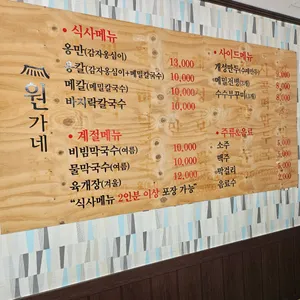 원가네
• 식사메뉴
옹만(감자옹심이) 13,000
옹칼(감자옹심이+메밀칼국수) 10,000
메칼(메밀칼국수) 10,000
바지락칼국수 10,000
• 계절메뉴
비빔막국수(여름) 10,000
물막국수(여름) 10,000
육개장(겨울) 12,000
“식사메뉴 2인분 이상 포장 가능”
• 사이드메뉴
개성만두(수제만두)
메밀전병(2개)
수수부꾸미(1개)
• 주류&음료
소주
맥주
막걸리
음료수 2,000